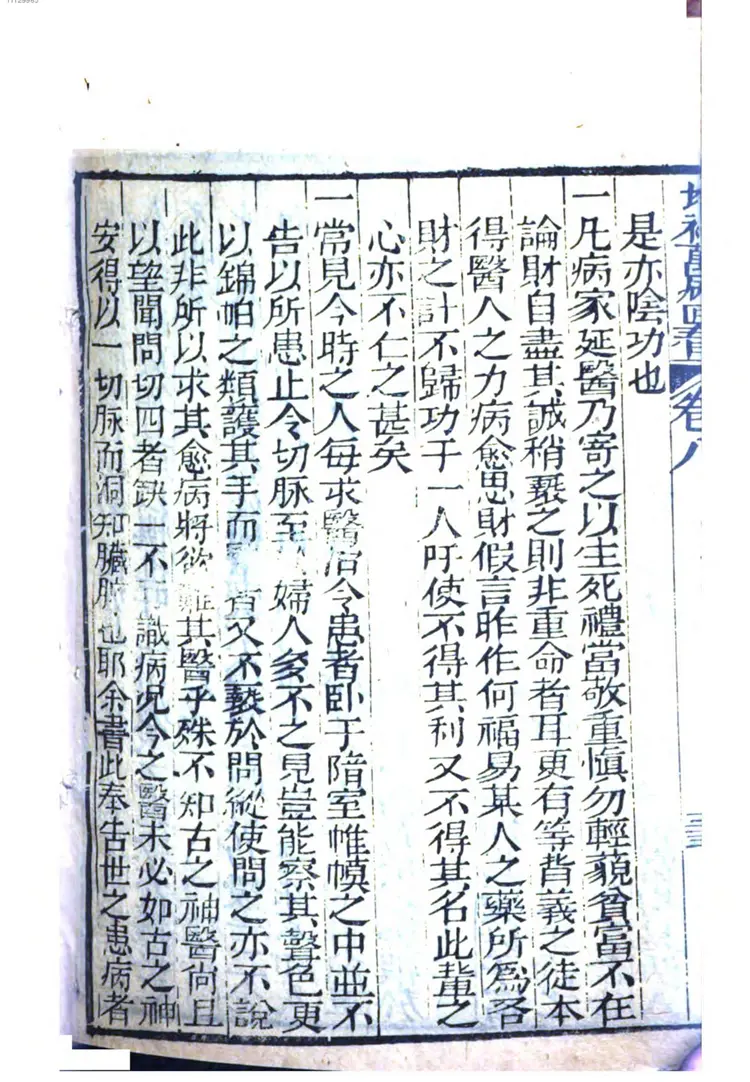 萬病回春 卷八
是亦陰功也
一凡病家延醫乃寄之以生死禮當敬重慎勿輕藐貧富不在
論財自盡其誠稍褻之則非重命者耳更有等背義之徒本
得醫人之力病愈思財假言昨作何福易某人之藥所為吝
財之計不歸功于一人吁使不得其利又不得其名此輩之
心亦不仁之甚矣
一常見今時之人每求醫治令患者卧于暗室帷幙之中並不
告以所患止令切脉至婦人多不之見豈能察其聲色更
以錦帕之類護其手而者又不褻於問縱使問之亦不說
此非所以求其愈病將欲難其醫乎殊不知古之神醫尚且
以望聞問切四者缺一不可識病况今之醫未必如古之神
安得以一切脉而洞知臟腑也耶余書此奉告世之患病者